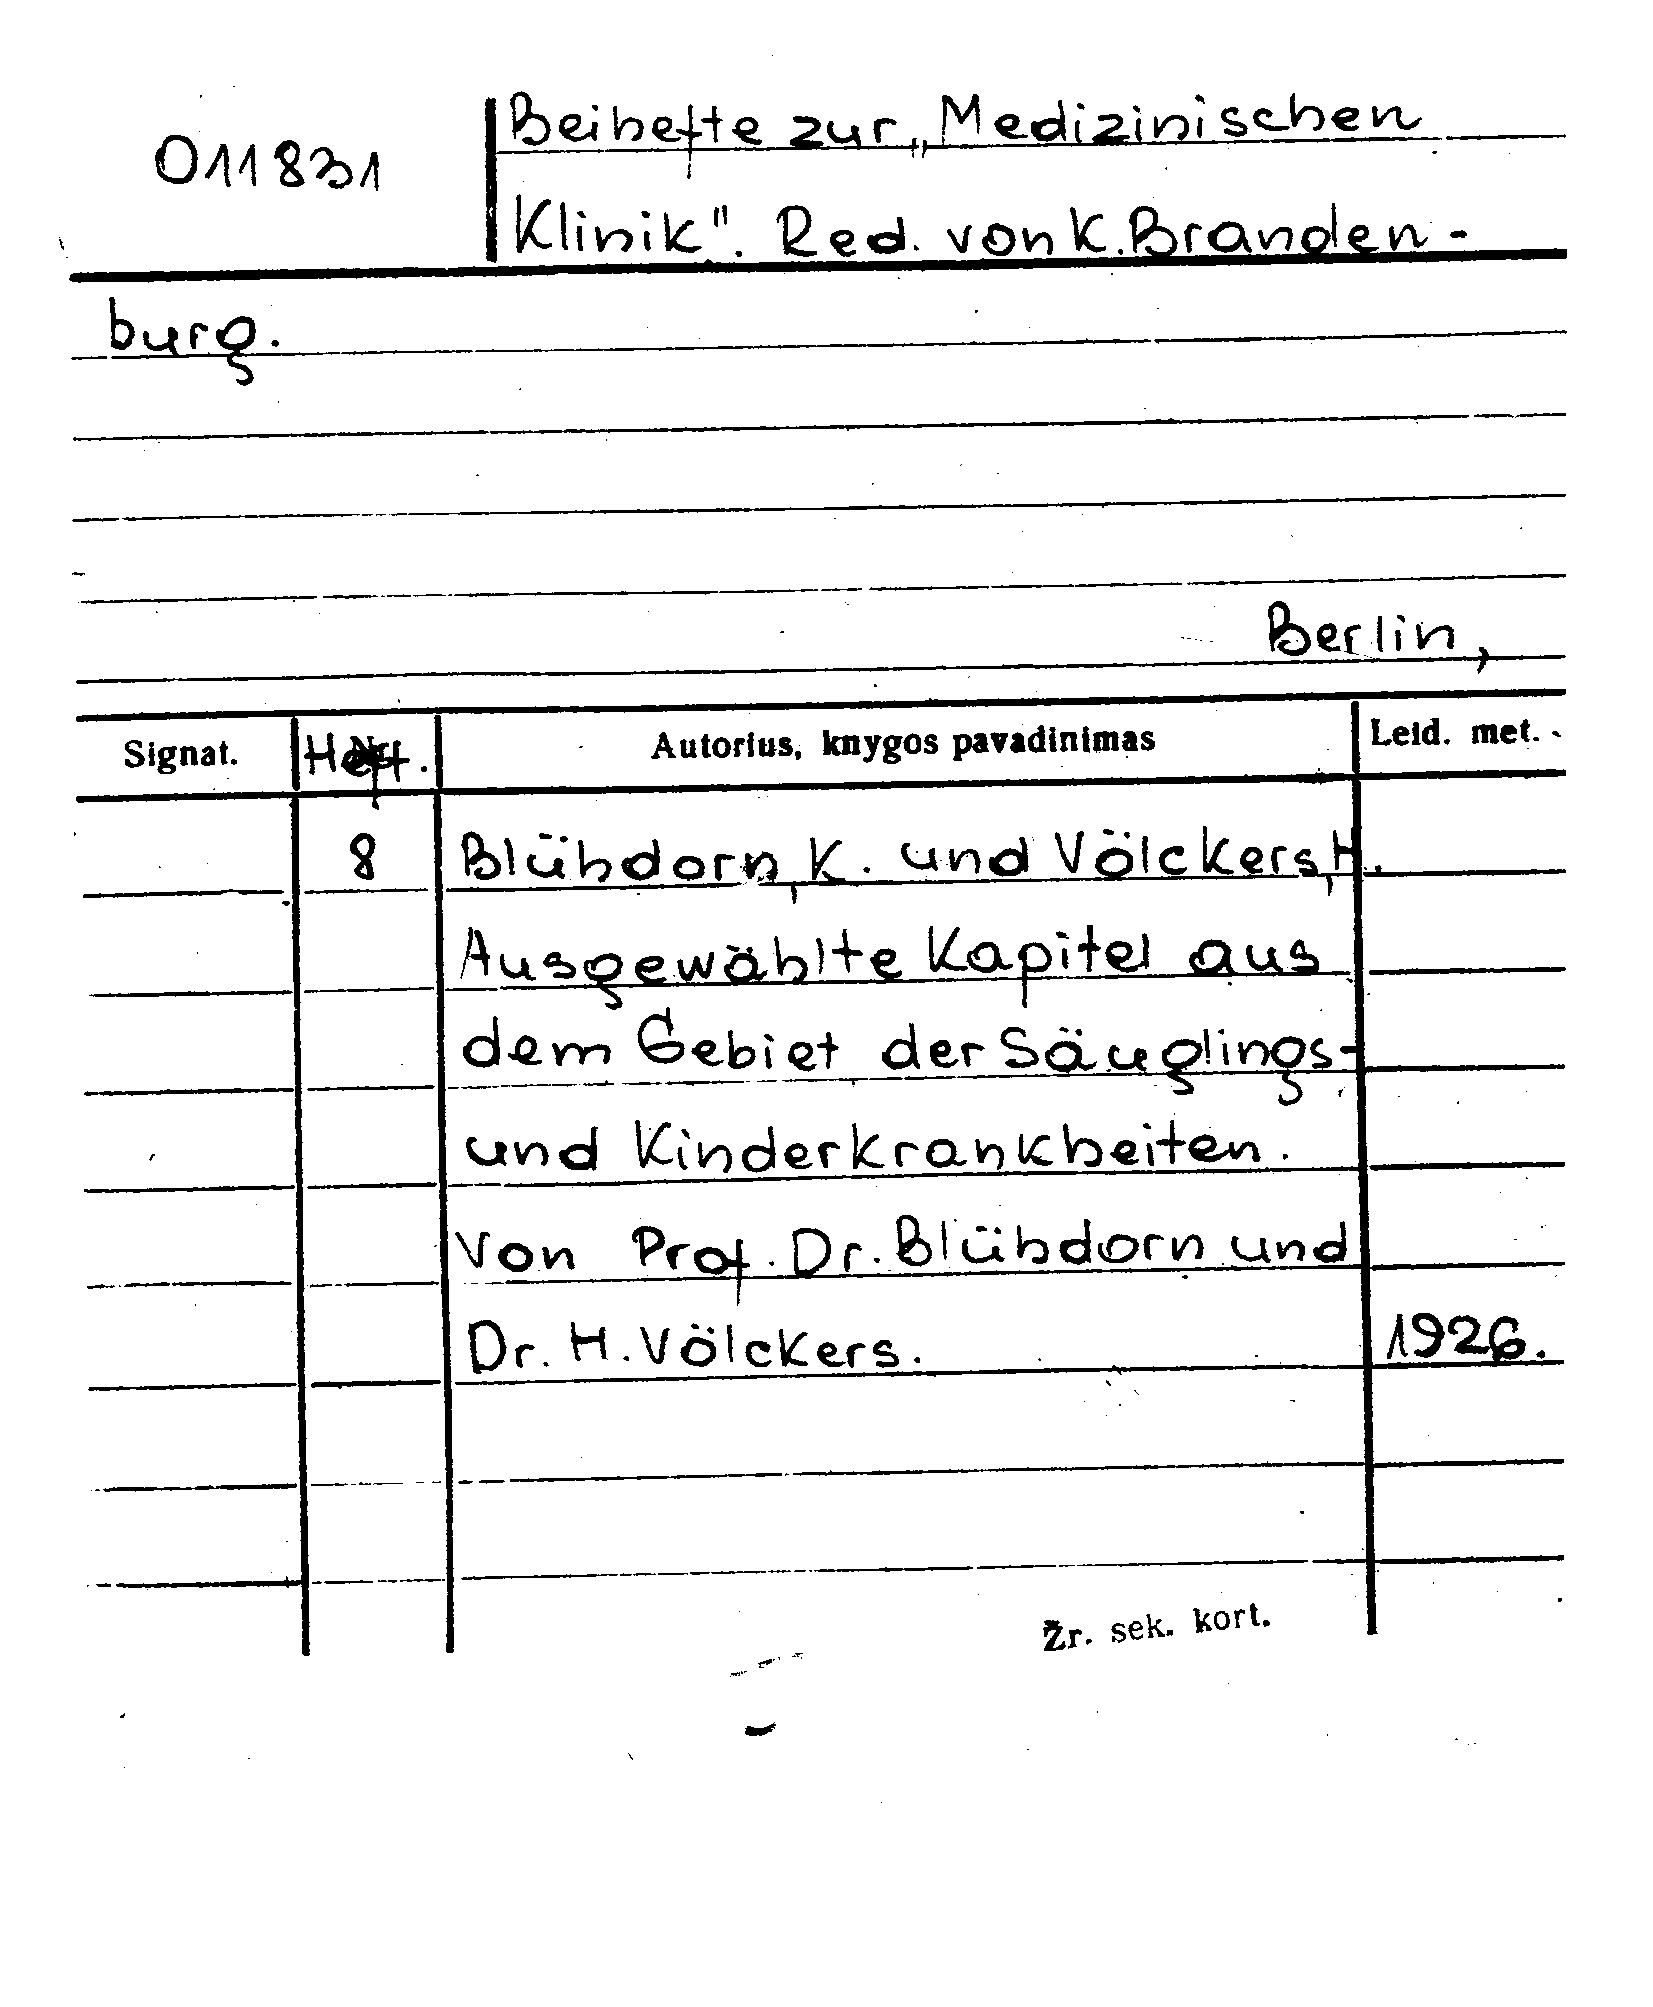 011831
Beihefte zur „Medizinischen
Klinik". Red. von K. Branden-
burg.
Berlin,
Signat. Heft. Autorius, knygos pavadinimas Leid. met.
8 Blühdorn, K. und Völckers, H.
Ausgewählte Kapitel aus
dem Gebiet der Säuglings-
und Kinderkrankheiten.
Von Prof. Dr. Blühdorn und
Dr. H. Völckers. 1926.
Žr. sek. kort.